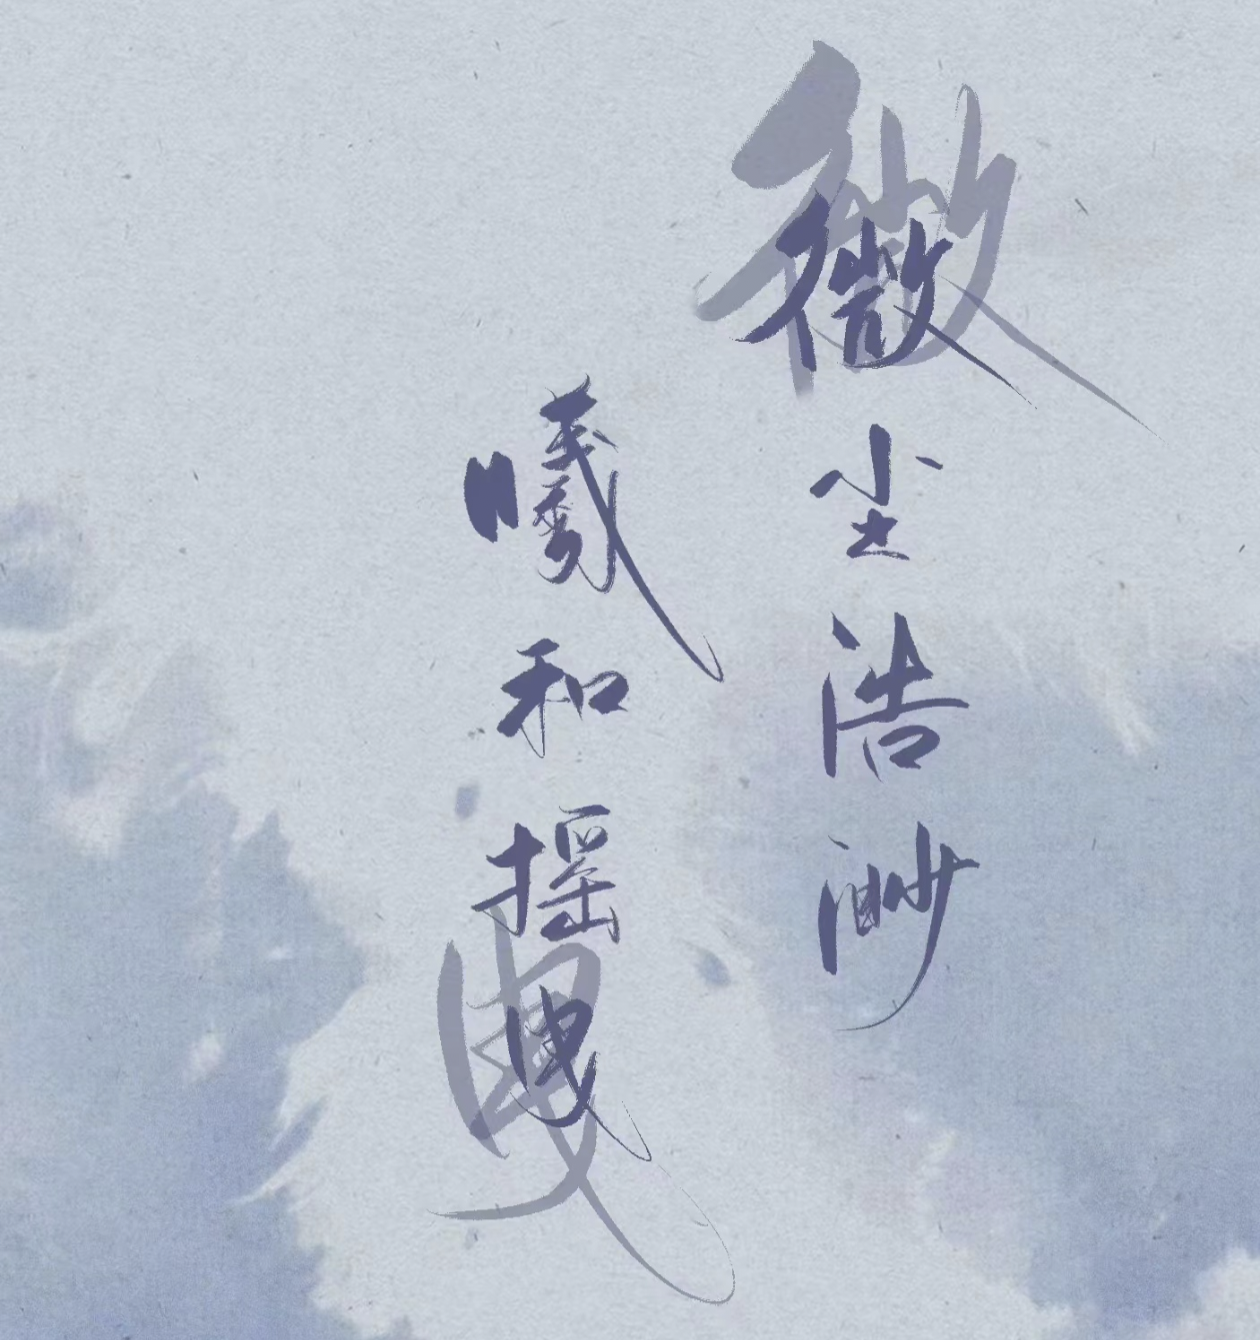 微尘浩渺
曦和摇曳